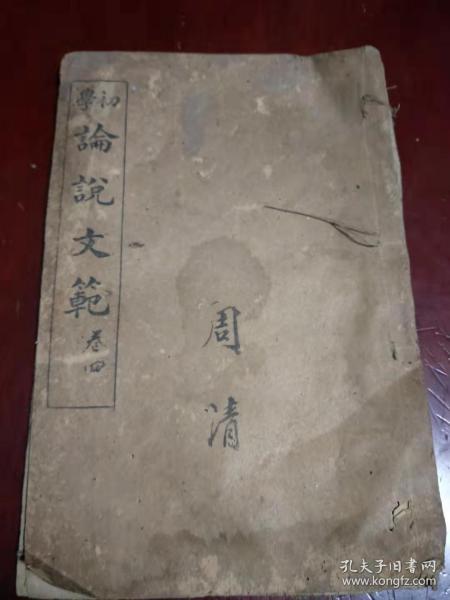 初學
論說文範
卷四
周清
孔夫子旧书网
www.kongfz.com